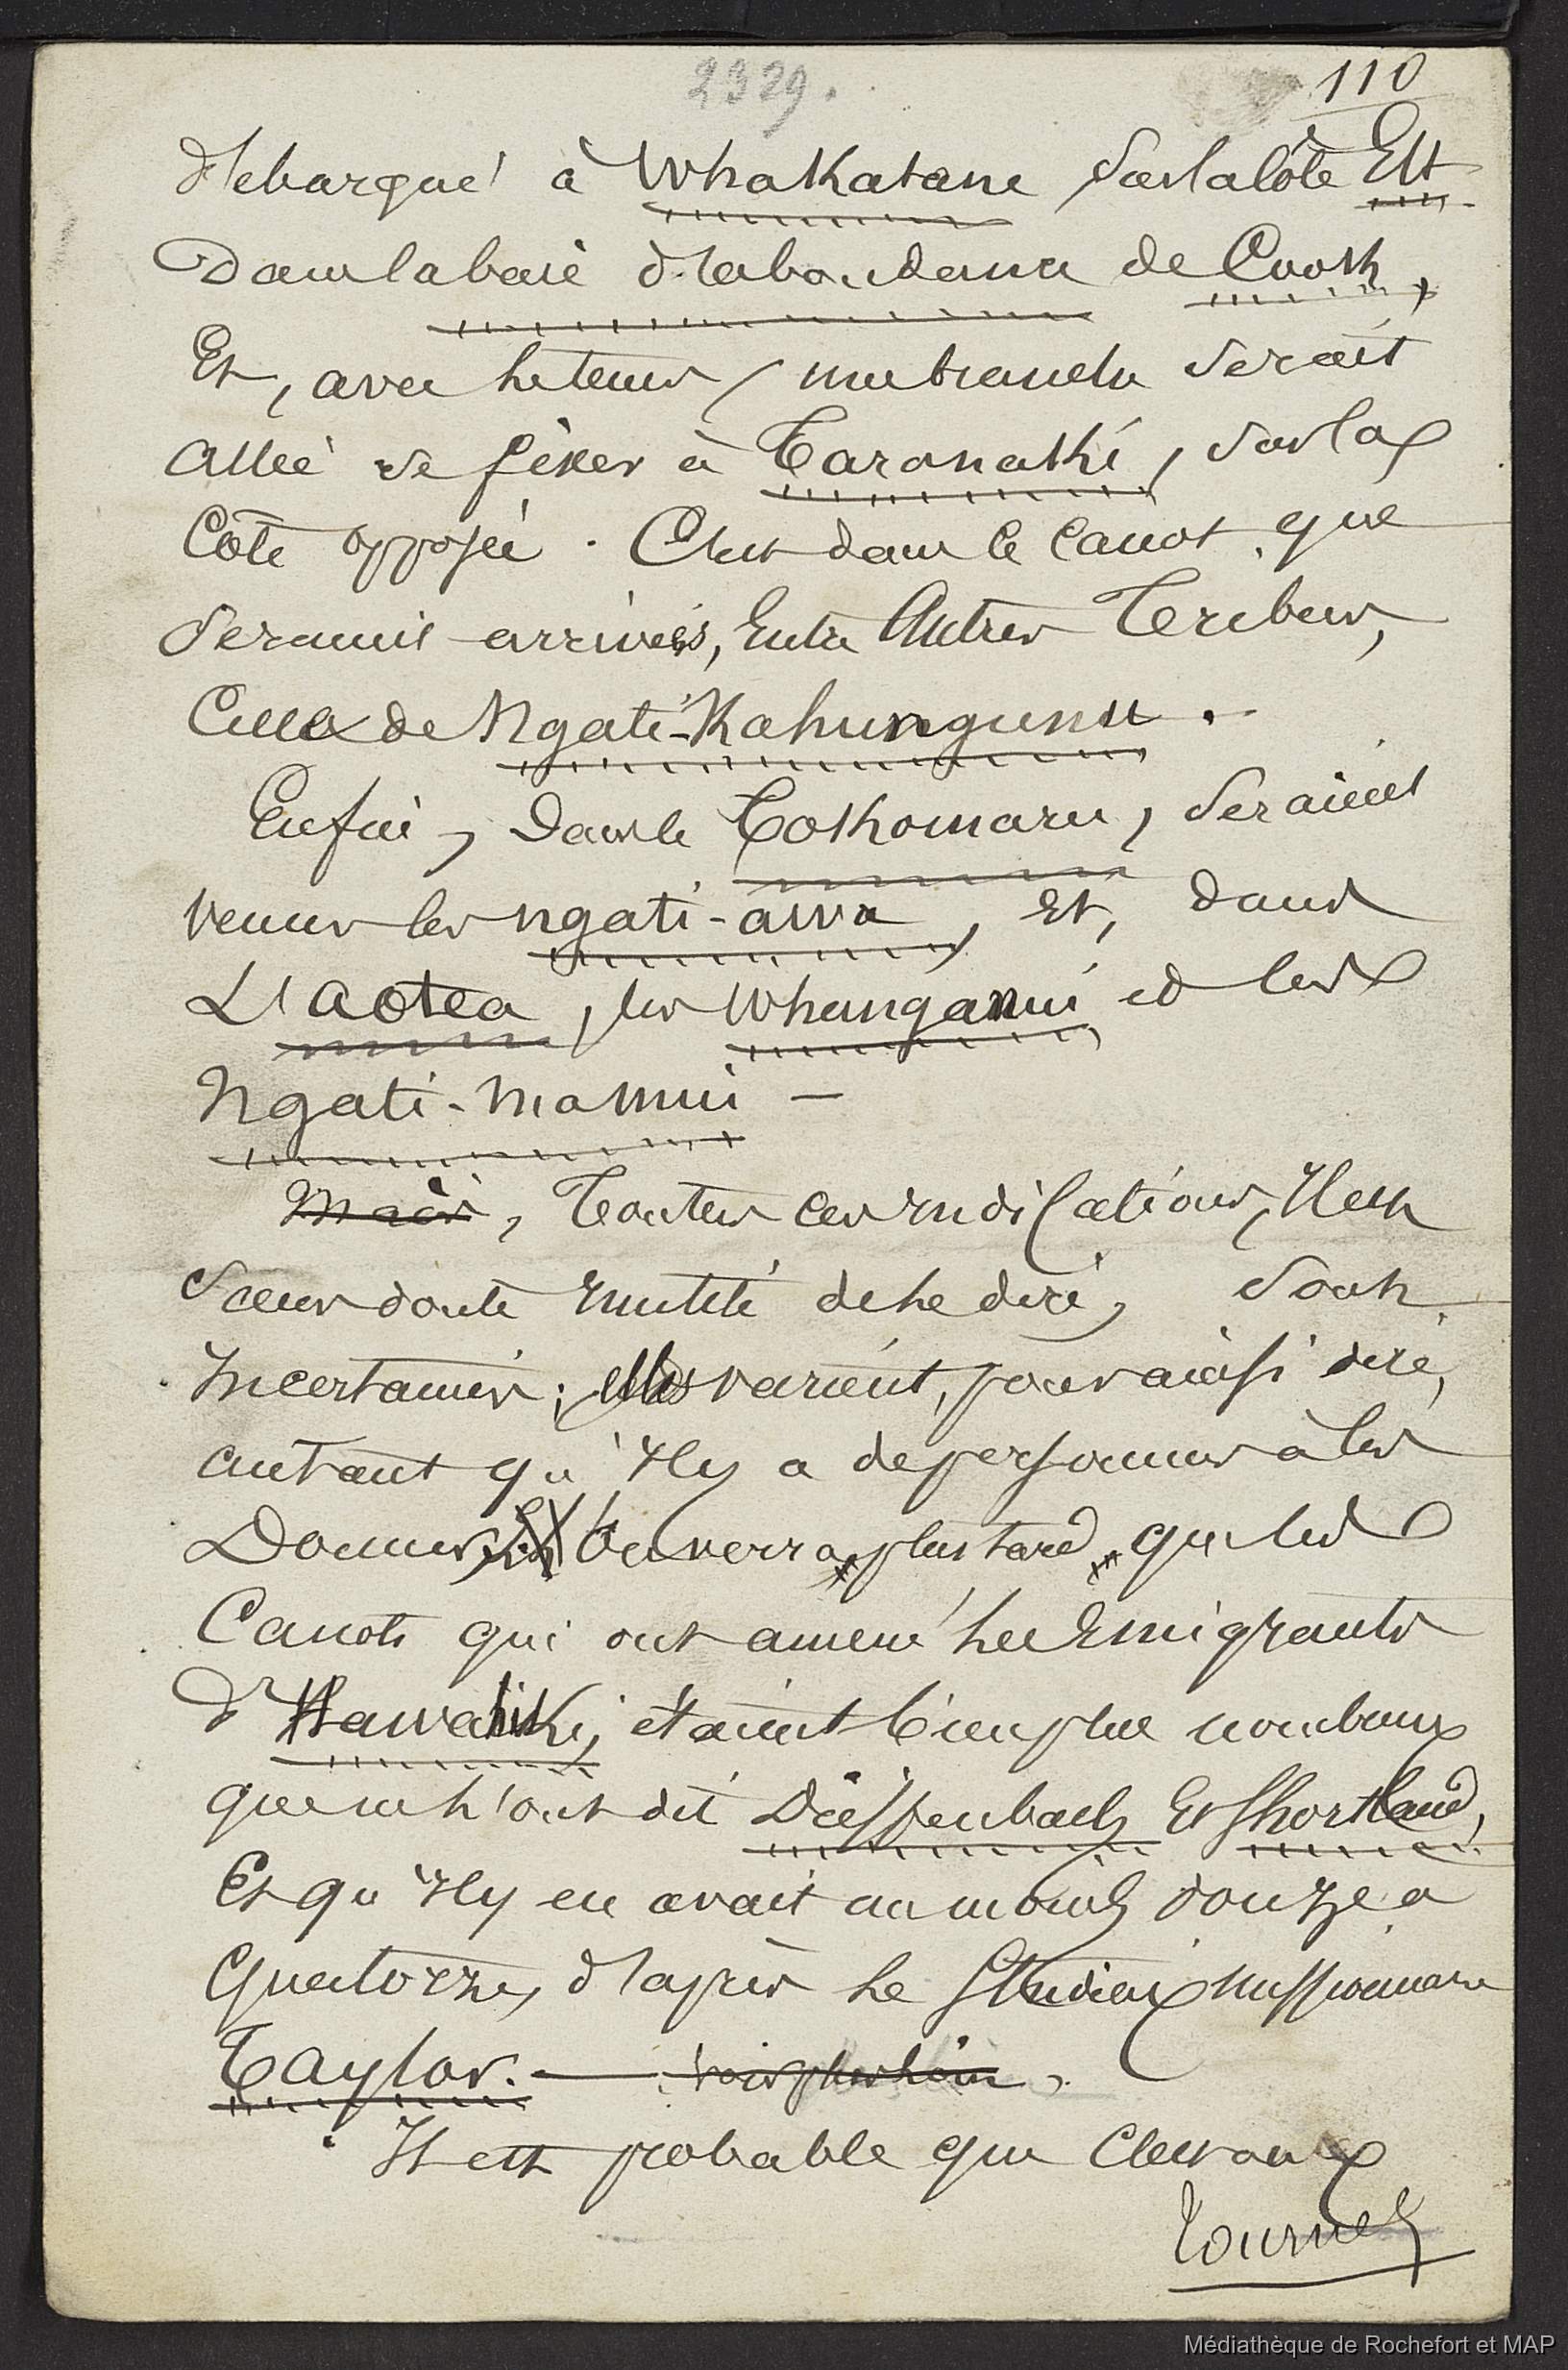 2329.
110
débarqué à Whakatane sur la côte Est
dans la baie d'abondance de Cook,
Et, avec le temps, une branche serait
allée se fixer à Taranaki, sur la
côte opposée. C'est dans ce canot que
seraient arrivées, entre autres Tribus,
celle de Ngati-Kahungunu.
Enfin, dans le Tokomaru, seraient
venus les ngati-awa, et, dans
L'aotea, les Whanganui et les
Ngati-mamui —
Mais, Toutes ces indications, il est
sans doute inutile de le dire, sont
incertaines; elles varient, pour ainsi dire,
autant qu'il y a de personnes à les
Donner, On verra plus tard que les
canots qui ont amené les Emigrants
d'Hawahiki, étaient bien plus nombreux
que ne l'ont dit Dieffenbach et Shortland,
Et qu'il y en avait au moins douze a
quatorze, d'après le studieux missionnaire
Taylor. — voir plus loin.
Il est probable que c'est aux
Tournez
Médiathèque de Rochefort et MAP